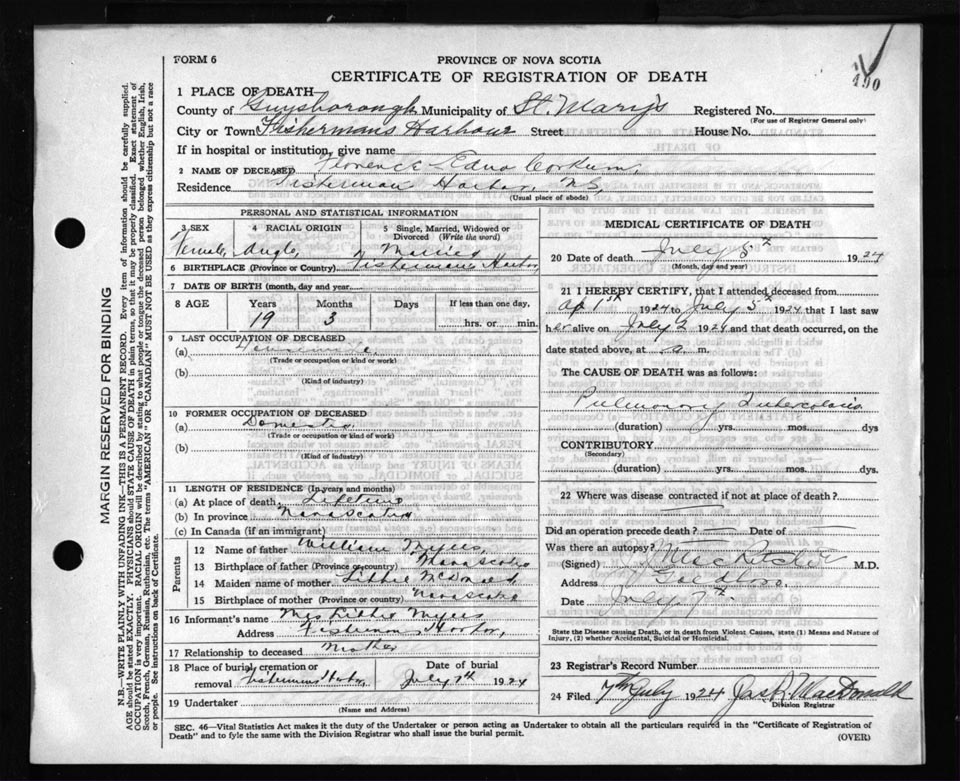 FORM 6
PROVINCE OF NOVA SCOTIA
CERTIFICATE OF REGISTRATION OF DEATH
490
1 PLACE OF DEATH—
County of Guysborough Municipality of St. Mary's Registered No.
(For use of Registrar General only)
City or Town Fishermans Harbour Street House No.
If in hospital or institution, give name
2 NAME OF DECEASED Florence Edna Corkum,
Residence Fisherman Harbor, N.S.
(Usual place of abode)
PERSONAL AND STATISTICAL INFORMATION
3 SEX 4 RACIAL ORIGIN 5 Single, Married, Widowed or Divorced (Write the word)
Female, Anglo, Married
6 BIRTHPLACE (Province or Country) Fishermans Harbor,
7 DATE OF BIRTH (month, day and year)
8 AGE Years Months Days If less than one day,
19 3 hrs. or min.
9 LAST OCCUPATION OF DECEASED
(a) Housewife
(Trade or occupation or kind or work)
(b)
(Kind of industry)
10 FORMER OCCUPATION OF DECEASED
(a) Domestic
(Trade or occupation or kind of work)
(b)
(Kind of industry)
11 LENGTH OF RESIDENCE (In years and months)
(a) At place of death Lifetime
(b) In province Nova Scotia
(c) In Canada (if an immigrant)
Parents
12 Name of father William Myers,
13 Birthplace of father (Province or country) Nova Scotia
14 Maiden name of mother
15 Birthplace of mother (Province or country) Nova Scotia
16 Informant's name Mrs Myers
Address Harbor,
17 Relationship to deceased Mother
18 Place of burial, cremation or removal Fishermans Harbor Date of burial July 7th 1924
19 Undertaker
(Name and Address)
MEDICAL CERTIFICATE OF DEATH
20 Date of death July 5th 1924
(Month, day and year)
21 I HEREBY CERTIFY, that I attended deceased from
Ap 1st 1924 to July 5th 1924 that I last saw
her alive on July 2 1924 and that death occurred, on the
date stated above, at a. m.
The CAUSE OF DEATH was as follows:
Pulmonary Tuberculosis
(duration) yrs. mos. dys
CONTRIBUTORY
(Secondary)
(duration) yrs. mos. ds.
22 Where was disease contracted if not at place of death?
Did an operation precede death? Date of
Was there an autopsy?
(Signed) M.D.
Address Goldboro
Date July 7th
State the Disease causing Death, or in death from Violent Causes, state (1) Means and Nature of
Injury, (2) whether Accidental, Suicidal or Homicidal.
23 Registrar's Record Number
24 Filed 7th July 1924 MacDonald
Division Registrar
SEC. 46—Vital Statistics Act makes it the duty of the Undertaker or person acting as Undertaker to obtain all the particulars required in the "Certificate of Registration of
Death" and to fyle the same with the Division Registrar who shall issue the burial permit. (OVER)
MARGIN RESERVED FOR BINDING
N.B.—WRITE PLAINLY WITH UNFADING INK—THIS IS A PERMANENT RECORD. Every item of information should be carefully supplied.
AGE should be stated EXACTLY. PHYSICIANS should STATE CAUSE OF DEATH in plain terms, so that it may be properly classified. Exact statement of
OCCUPATION is very important. RACIAL ORIGIN will be described by stating to what people or tongue the deceased person belonged whether English, Irish,
Scotch, French, German, Russian, Ruthenian, etc. The terms "AMERICAN" OR "CANADIAN" MUST NOT BE USED as they express citizenship but not a race
or people. See instructions on back of Certificate.